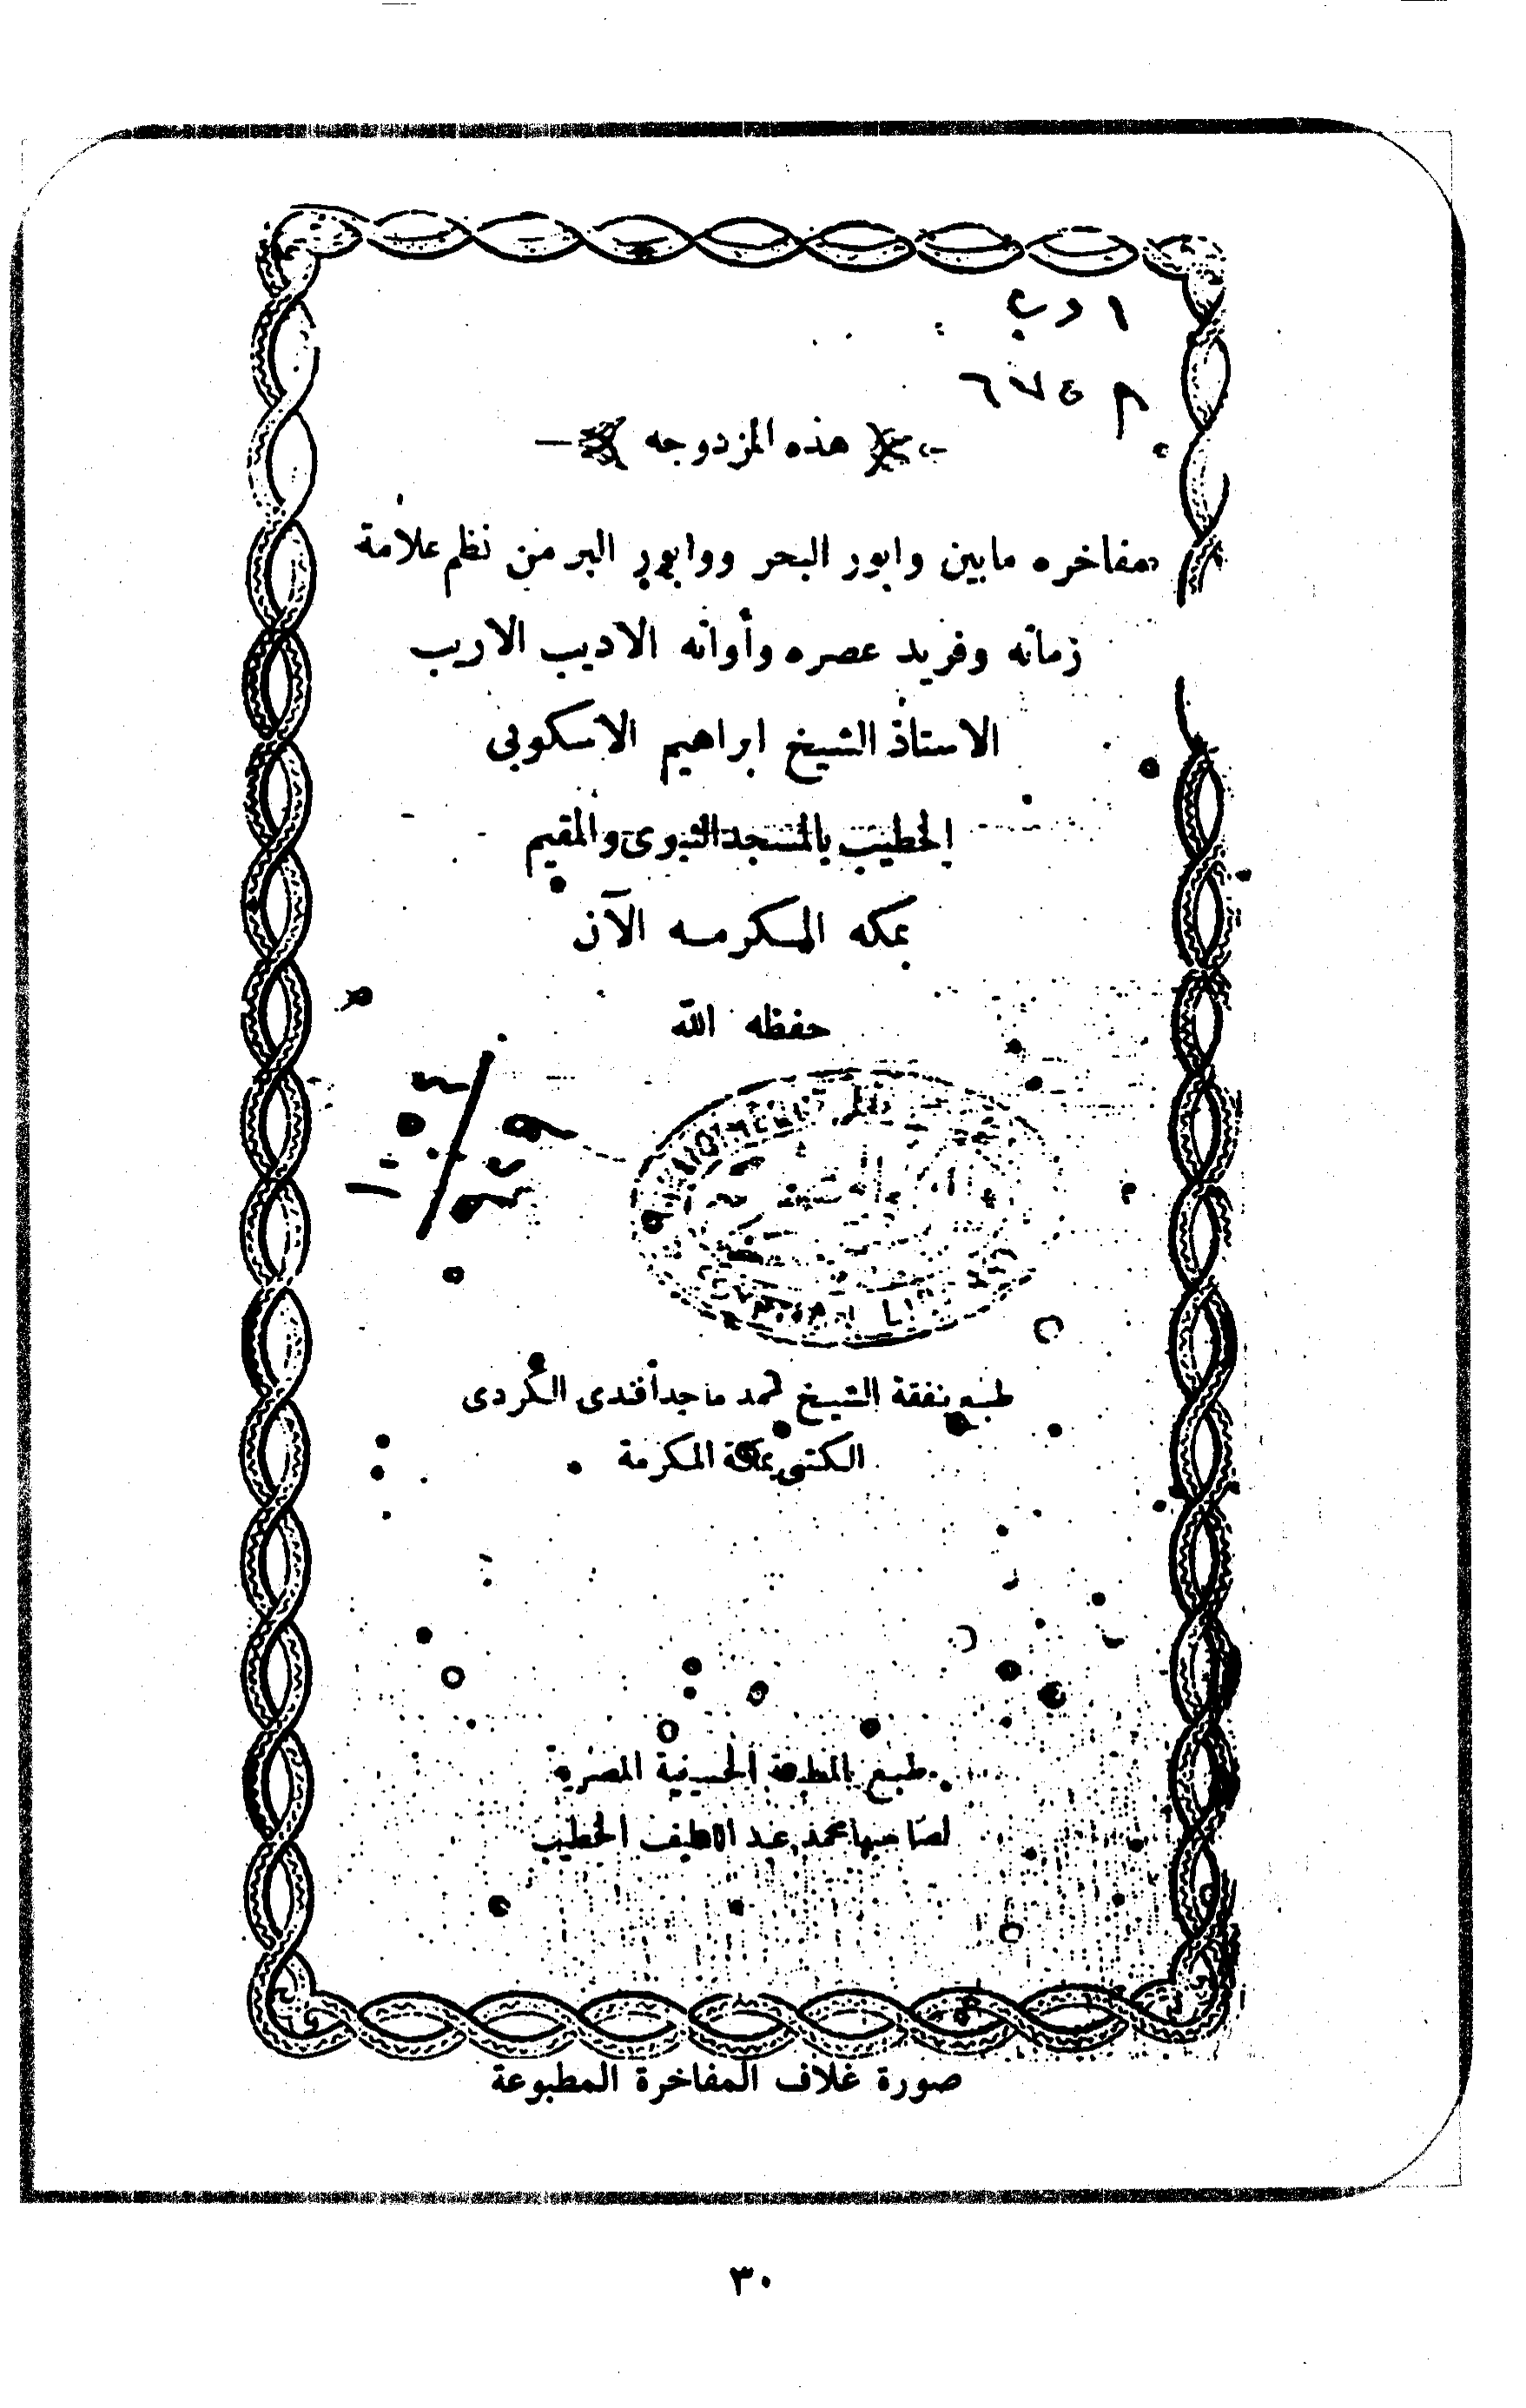 ادب
هذه المزدوجه
مفاخره مابين وابور البحر ووابور البر من نظم علامة
زمانه وفريد عصره وأوانه الاديب الارب
الاستاذ الشيخ ابراهيم الاسكوبى
الخطيب بالمسجد النبوى والمقيم
بمكه المكرمه الآن
حفظه الله
طبع بنفقة الشيخ محمد ماجد أفندى الكردى
الكتبى بمكة المكرمة
طبع بالمطبعة الحسينية المصرية
لصاحبها محمد عبد اللطيف الخطيب
صورة غلاف المفاخرة المطبوعة
٣٠